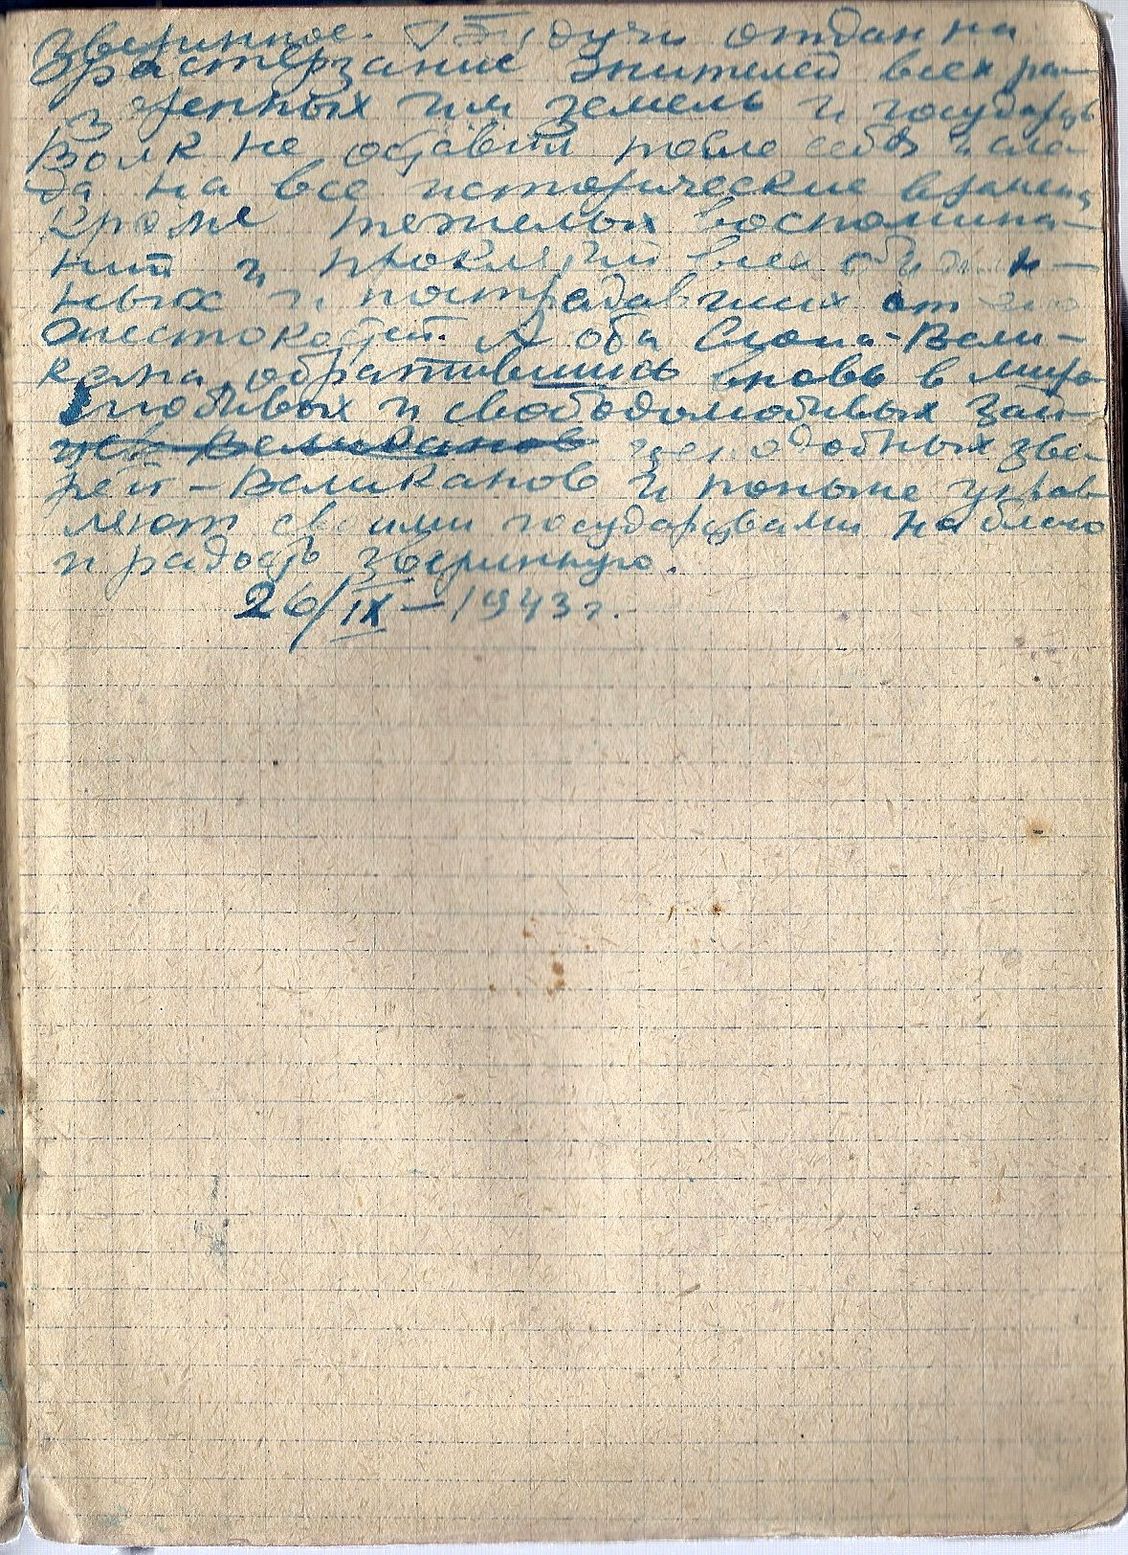 звериное. Будучи отдан на
растерзание жителей всех ра-
зоренных им земель и государств
Волк не оставит после себя и сле-
да на все исторические времена
кроме тяжелых воспомина-
ний и проклятий всех обижен-
ных и пострадавших от его
жестокостей. А оба Слона-Вели-
кана, обратившись вновь в миро-
любивых и свободолюбивых
человекоподобных зве-
рей-Великанов и поныне управ-
ляют своими государствами на благо
и радость звериную.
26/IX-1943 г.